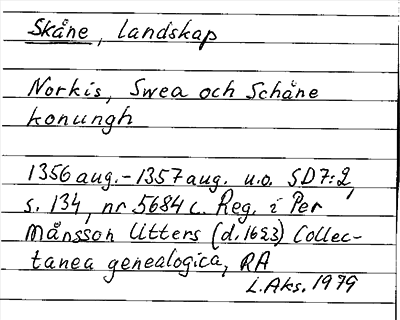 Skåne, landskap
Norkis, Swea och Schåne
konungh
1356 aug.-1357 aug. u.o. SD7:2,
s. 134, nr 5684 c. Reg. i Per
Månsson Utters (d. 1623) Collec-
tanea genealogica, RA
L.Aks. 1979